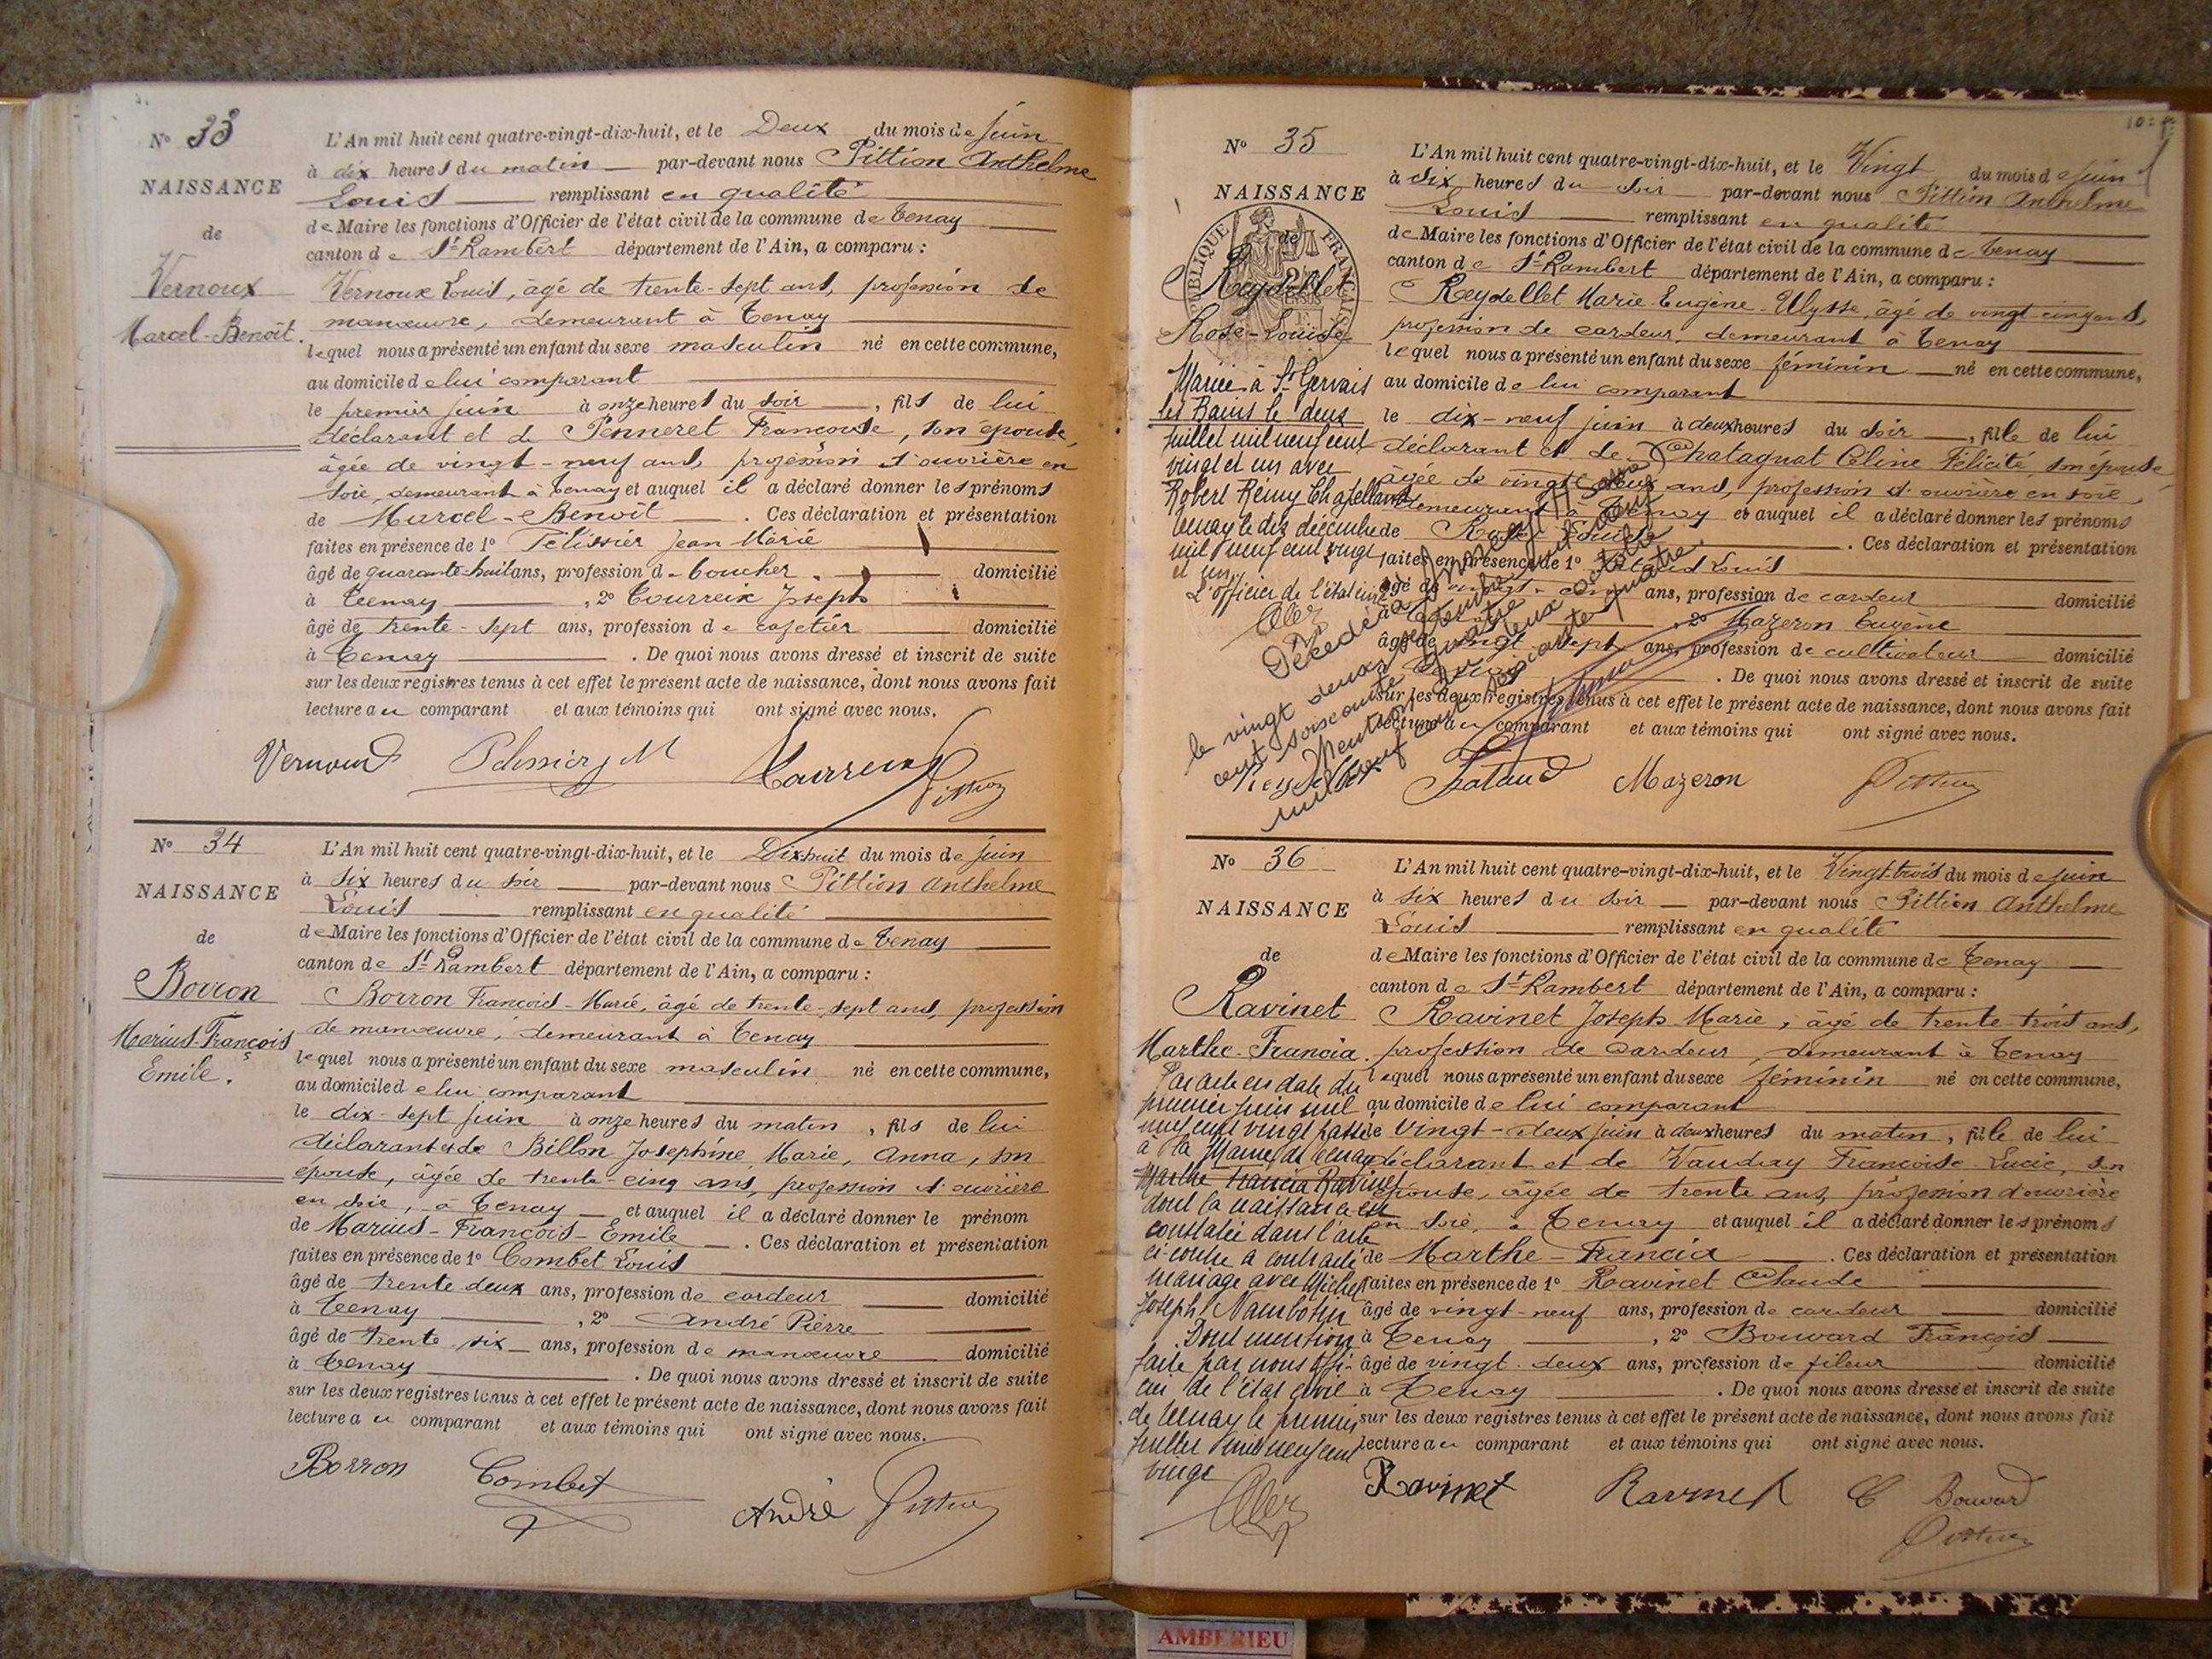 N° 33
NAISSANCE
de
Vernoux
Marcel-Benoît.
L'An mil huit cent quatre-vingt-dix-huit, et le Deux du mois de juin
à dix heures du matin — par-devant nous Pittion Anthelme
Louis — remplissant en qualité
de Maire les fonctions d'Officier de l'état civil de la commune de Tenay
canton de St-Rambert département de l'Ain, a comparu :
Vernoux Louis, âgé de trente-sept ans, profession de
manœuvre, demeurant à Tenay
lequel nous a présenté un enfant du sexe masculin né en cette commune,
au domicile de lui comparant
le premier juin à onze heures du soir —, fils de lui
déclarant et de Penneret Françoise, son épouse,
âgée de vingt-neuf ans, profession d'ouvrière en
soie, demeurant à Tenay et auquel il a déclaré donner les prénoms
de Marcel-Benoît — . Ces déclaration et présentation
faites en présence de 1° Pélissier Jean Marie
âgé de quarante-huit ans, profession de boucher — domicilié
à Tenay — , 2° Courreix Joseph
âgé de trente-sept ans, profession de cafetier — domicilié
à Tenay — . De quoi nous avons dressé et inscrit de suite
sur les deux registres tenus à cet effet le présent acte de naissance, dont nous avons fait
lecture au comparant et aux témoins qui ont signé avec nous.
Vernoux
Pittion
N° 34
NAISSANCE
de
Borron
Marius-François
Emile.
L'An mil huit cent quatre-vingt-dix-huit, et le Dix huit du mois de juin
à six heures du soir — par-devant nous Pittion Anthelme
Louis — remplissant en qualité
de Maire les fonctions d'Officier de l'état civil de la commune de Tenay
canton de St-Rambert département de l'Ain, a comparu :
Borron François-Marie, âgé de trente-sept ans, profession
de manœuvre, demeurant à Tenay
lequel nous a présenté un enfant du sexe masculin né en cette commune,
au domicile de lui comparant
le dix-sept juin à onze heures du matin, fils de lui
déclarant et de Billon Joséphine, Marie, Anna, son
épouse, âgée de trente-cinq ans, profession d'ouvrière
en soie, à Tenay — et auquel il a déclaré donner le prénom
de Marius-François-Emile — . Ces déclaration et présentation
faites en présence de 1° Combet Louis
âgé de trente deux ans, profession de cardeur — domicilié
à Tenay — , 2° André Pierre
âgé de trente-six — ans, profession de manœuvre — domicilié
à Tenay — . De quoi nous avons dressé et inscrit de suite
sur les deux registres tenus à cet effet le présent acte de naissance, dont nous avons fait
lecture au comparant et aux témoins qui ont signé avec nous.
Borron Combet André Pittion
N° 35
NAISSANCE
de
Reydellet
Rose-Louise
Mariée à St Gervais
les Bains le deux
juillet mil neuf cent
vingt et un avec
Robert Rémy Chapelland
Tenay le dix décembre
mil neuf cent vingt
et un.
L'officier de l'état civil
L'An mil huit cent quatre-vingt-dix-huit, et le Vingt du mois de juin
à dix heures du soir par-devant nous Pittion Anthelme
Louis — remplissant en qualité
de Maire les fonctions d'Officier de l'état civil de la commune de Tenay
canton de St-Rambert département de l'Ain, a comparu :
Reydellet Marie-Eugène-Ulysse, âgé de vingt-cinq ans,
profession de cardeur, demeurant à Tenay
lequel nous a présenté un enfant du sexe féminin — né en cette commune,
au domicile de lui comparant
le dix-neuf juin à deux heures du soir —, fille de lui
déclarant et de Chatagnat Céline Félicité, son épouse
âgée de vingt deux ans, profession d'ouvrière en soie,
demeurant à Tenay et auquel il a déclaré donner les prénoms
de Rose-Louise — . Ces déclaration et présentation
faites en présence de 1° Louis
âgé de vingt-cinq ans, profession de cardeur — domicilié
, 2° Mazeron Eugène
âgé de vingt-sept ans, profession de cultivateur — domicilié
à Tenay . De quoi nous avons dressé et inscrit de suite
sur les deux registres tenus à cet effet le présent acte de naissance, dont nous avons fait
lecture au comparant et aux témoins qui ont signé avec nous.
Décédée à
le vingt deux septembre mil neuf
cent soixante quatre
Mention du deux octobre
mil neuf cent soixante quatre.
Reydellet Mazeron Pittion
N° 36
NAISSANCE
de
Ravinet
Marthe-Francia.
Par acte en date du
premier juin mil
neuf cent vingt passé
à la Mairie de Tenay
Marthe Francia Ravinet
dont la naissance est
constatée dans l'acte
ci-contre a contracté
mariage avec Michel
Joseph Nambotin
Dont mention
faite par nous offi-
cier de l'état civil
de Tenay le premier
juillet mil neuf cent
vingt
L'An mil huit cent quatre-vingt-dix-huit, et le Vingt-trois du mois de juin
à six heures du soir — par-devant nous Pittion Anthelme
Louis — remplissant en qualité
de Maire les fonctions d'Officier de l'état civil de la commune de Tenay —
canton de St-Rambert département de l'Ain, a comparu :
Ravinet Joseph Marie, âgé de trente-trois ans,
profession de cardeur, demeurant à Tenay
lequel nous a présenté un enfant du sexe féminin né en cette commune,
au domicile de lui comparant
le vingt-deux juin à deux heures du matin, fille de lui
déclarant et de Vaudray Françoise-Lucie, son
épouse, âgée de trente ans, profession d'ouvrière
en soie, à Tenay et auquel il a déclaré donner les prénoms
de Marthe-Francia — . Ces déclaration et présentation
faites en présence de 1° Ravinet Claude
âgé de vingt-neuf ans, profession de cardeur — domicilié
à Tenay — , 2° Bouvard François —
âgé de vingt-deux ans, profession de fileur — domicilié
à Tenay — . De quoi nous avons dressé et inscrit de suite
sur les deux registres tenus à cet effet le présent acte de naissance, dont nous avons fait
lecture au comparant et aux témoins qui ont signé avec nous.
Ravinet Ravinet C Bouvard
Pittion
AMBERIEU